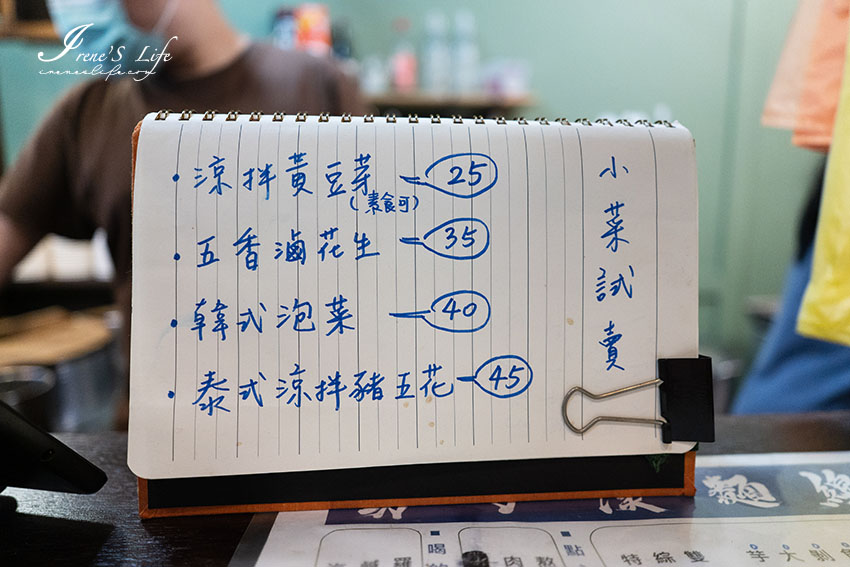 Irene'S Life
ireneslife.com
小菜試賣
・涼拌黃豆芽 25
(素食可)
・五香滷花生 35
・韓式泡菜 40
・泰式涼拌豬五花 45
喝
點
肉熬
特綜雙
芋大剝